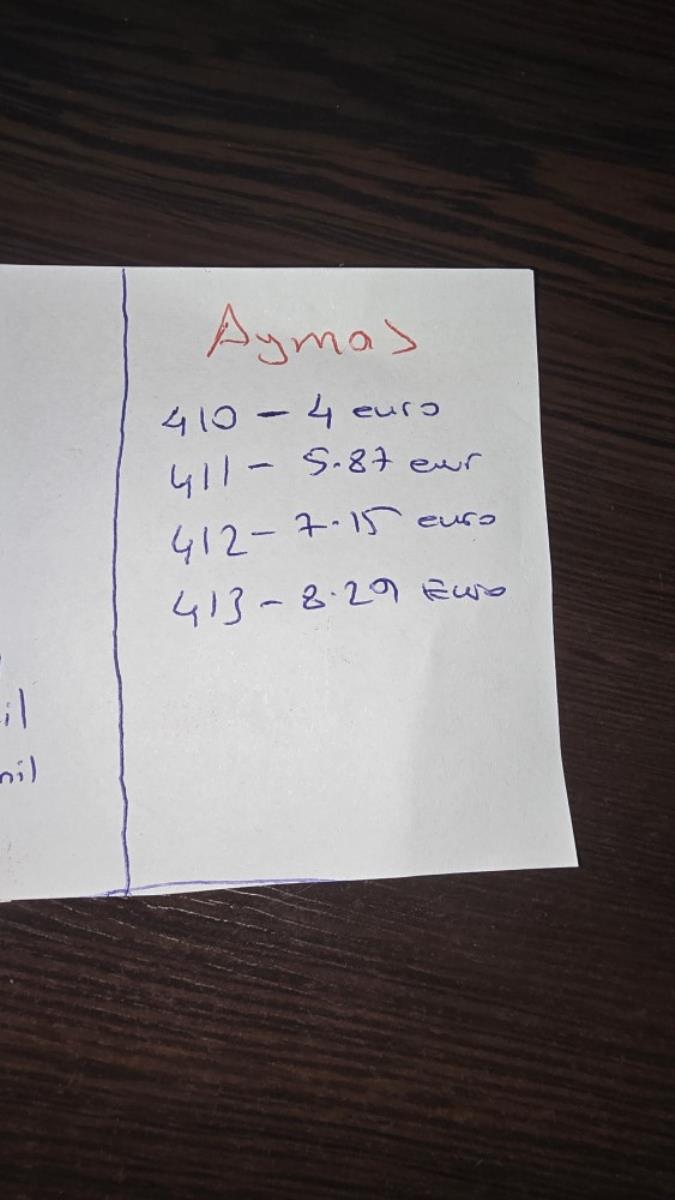 Aymas
410 - 4 euro
411 - 5.87 eur
412 - 7.15 euro
413 - 8.29 Euro
il
nil